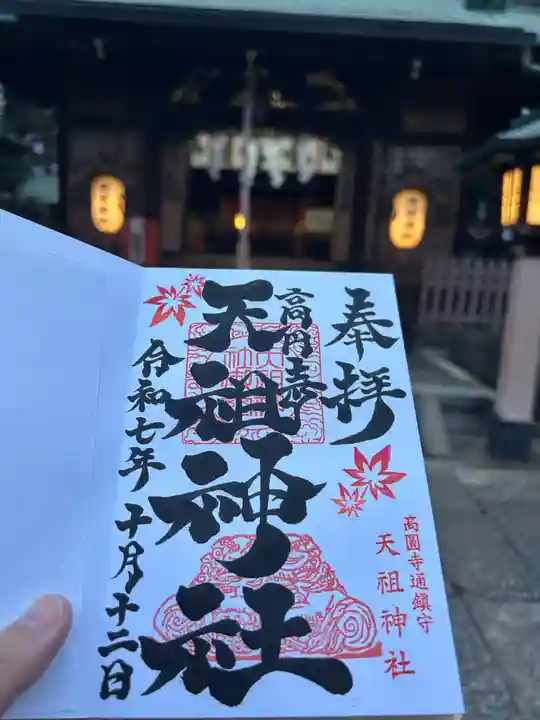 奉拝
高円寺
天祖神社
令和七年十月十二日
高圓寺通鎮守
天祖神社